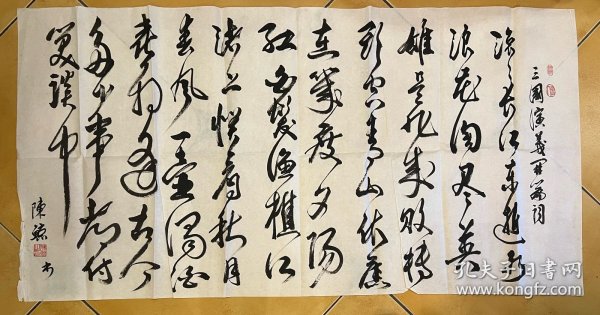 三國演義开篇詞
滚〻长江东逝水
浪花淘尽英
雄是非成败转
头空青山依旧
在幾度夕陽
红白髮漁樵江
渚上惯看秋月
春风一壶濁酒
喜相逢古今
多少事都付
笑談中
陳
书
孔夫子旧书网
www.kongfz.com